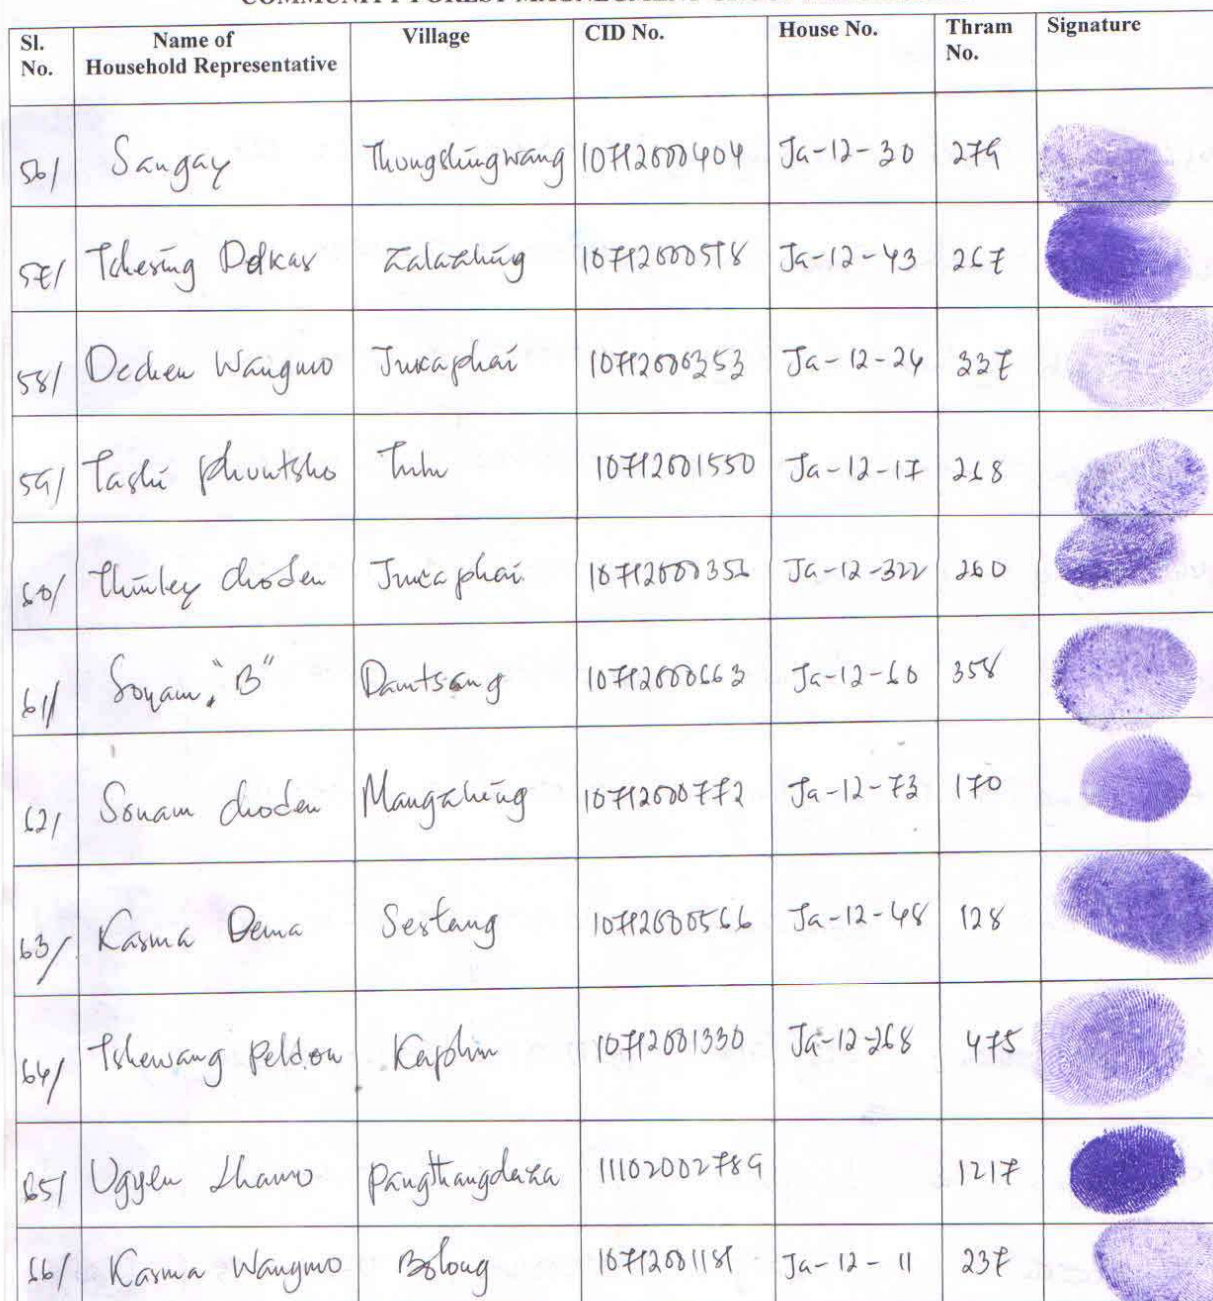 COMMUNITY FOREST
Sl. No. Name of Household Representative Village CID No. House No. Thram No. Signature
56/ Sangay Thongshingwang 10712000404 Ja-12-30 279
57/ Tshering Delkar Zalazhing 10712000578 Ja-12-43 267
58/ Dechen Wangmo Jucaphai 10712000353 Ja-12-24 337
59/ Tashi Phuntsho 10712001550 Ja-12-17 268
60/ Thinley Choden Jucaphai 1071200035 Ja-12-322 260
61/ Sonam "B" Damtsang 10712000663 Ja-12-60 358
62/ Sonam Choden Mangzhing 10712000772 Ja-12-73 170
63/ Karma Dema Sertang 10712000566 Ja-12-48 128
64/ Tshewang Peldon Kaphin 10712001330 Ja-12-268 475
65/ Ugyen Lhamo Pangthangdaza 11102002789 1217
66/ Karma Wangmo Bolong 10712001181 Ja-12-11 237